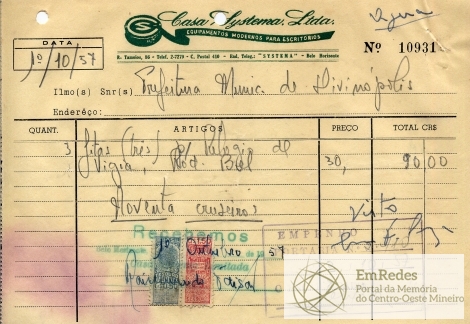 Casa Systema, Ltda.
EQUIPAMENTOS MODERNOS PARA ESCRITORIOS
R. Tamoios, 56 - Telef. 2-7270 - C. Postal 410 - End. Teleg.: "SYSTEMA" - Belo Horizonte
DATA
1º/10/57
Nº 10931
Ilmo(s) Snr(s) Prefeitura Munic. de Divinópolis
Endereço:
QUANT. ARTIGOS PREÇO TOTAL CR$
3 fitas (três) p/ relogio de 30, 90,00
Vigia,
Noventa cruzeiros
Visto
Recebemos
EMPENHO
1º Outubro 57
EmRedes
Portal da Memória
do Centro-Oeste Mineiro